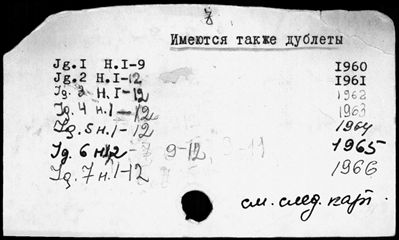 Имеются также дублеты
Jg.I H.I-9 I960
Jg.2 H.I-12 I96I
Jg. 3 H.I-12 1962
Jg. 4 н.1-12 1963
Jg. 5 н.1-12 1964
Jg. 6 н. 9-12, 1965
Jg. 7 н.1-12 1966
см. след. карт.